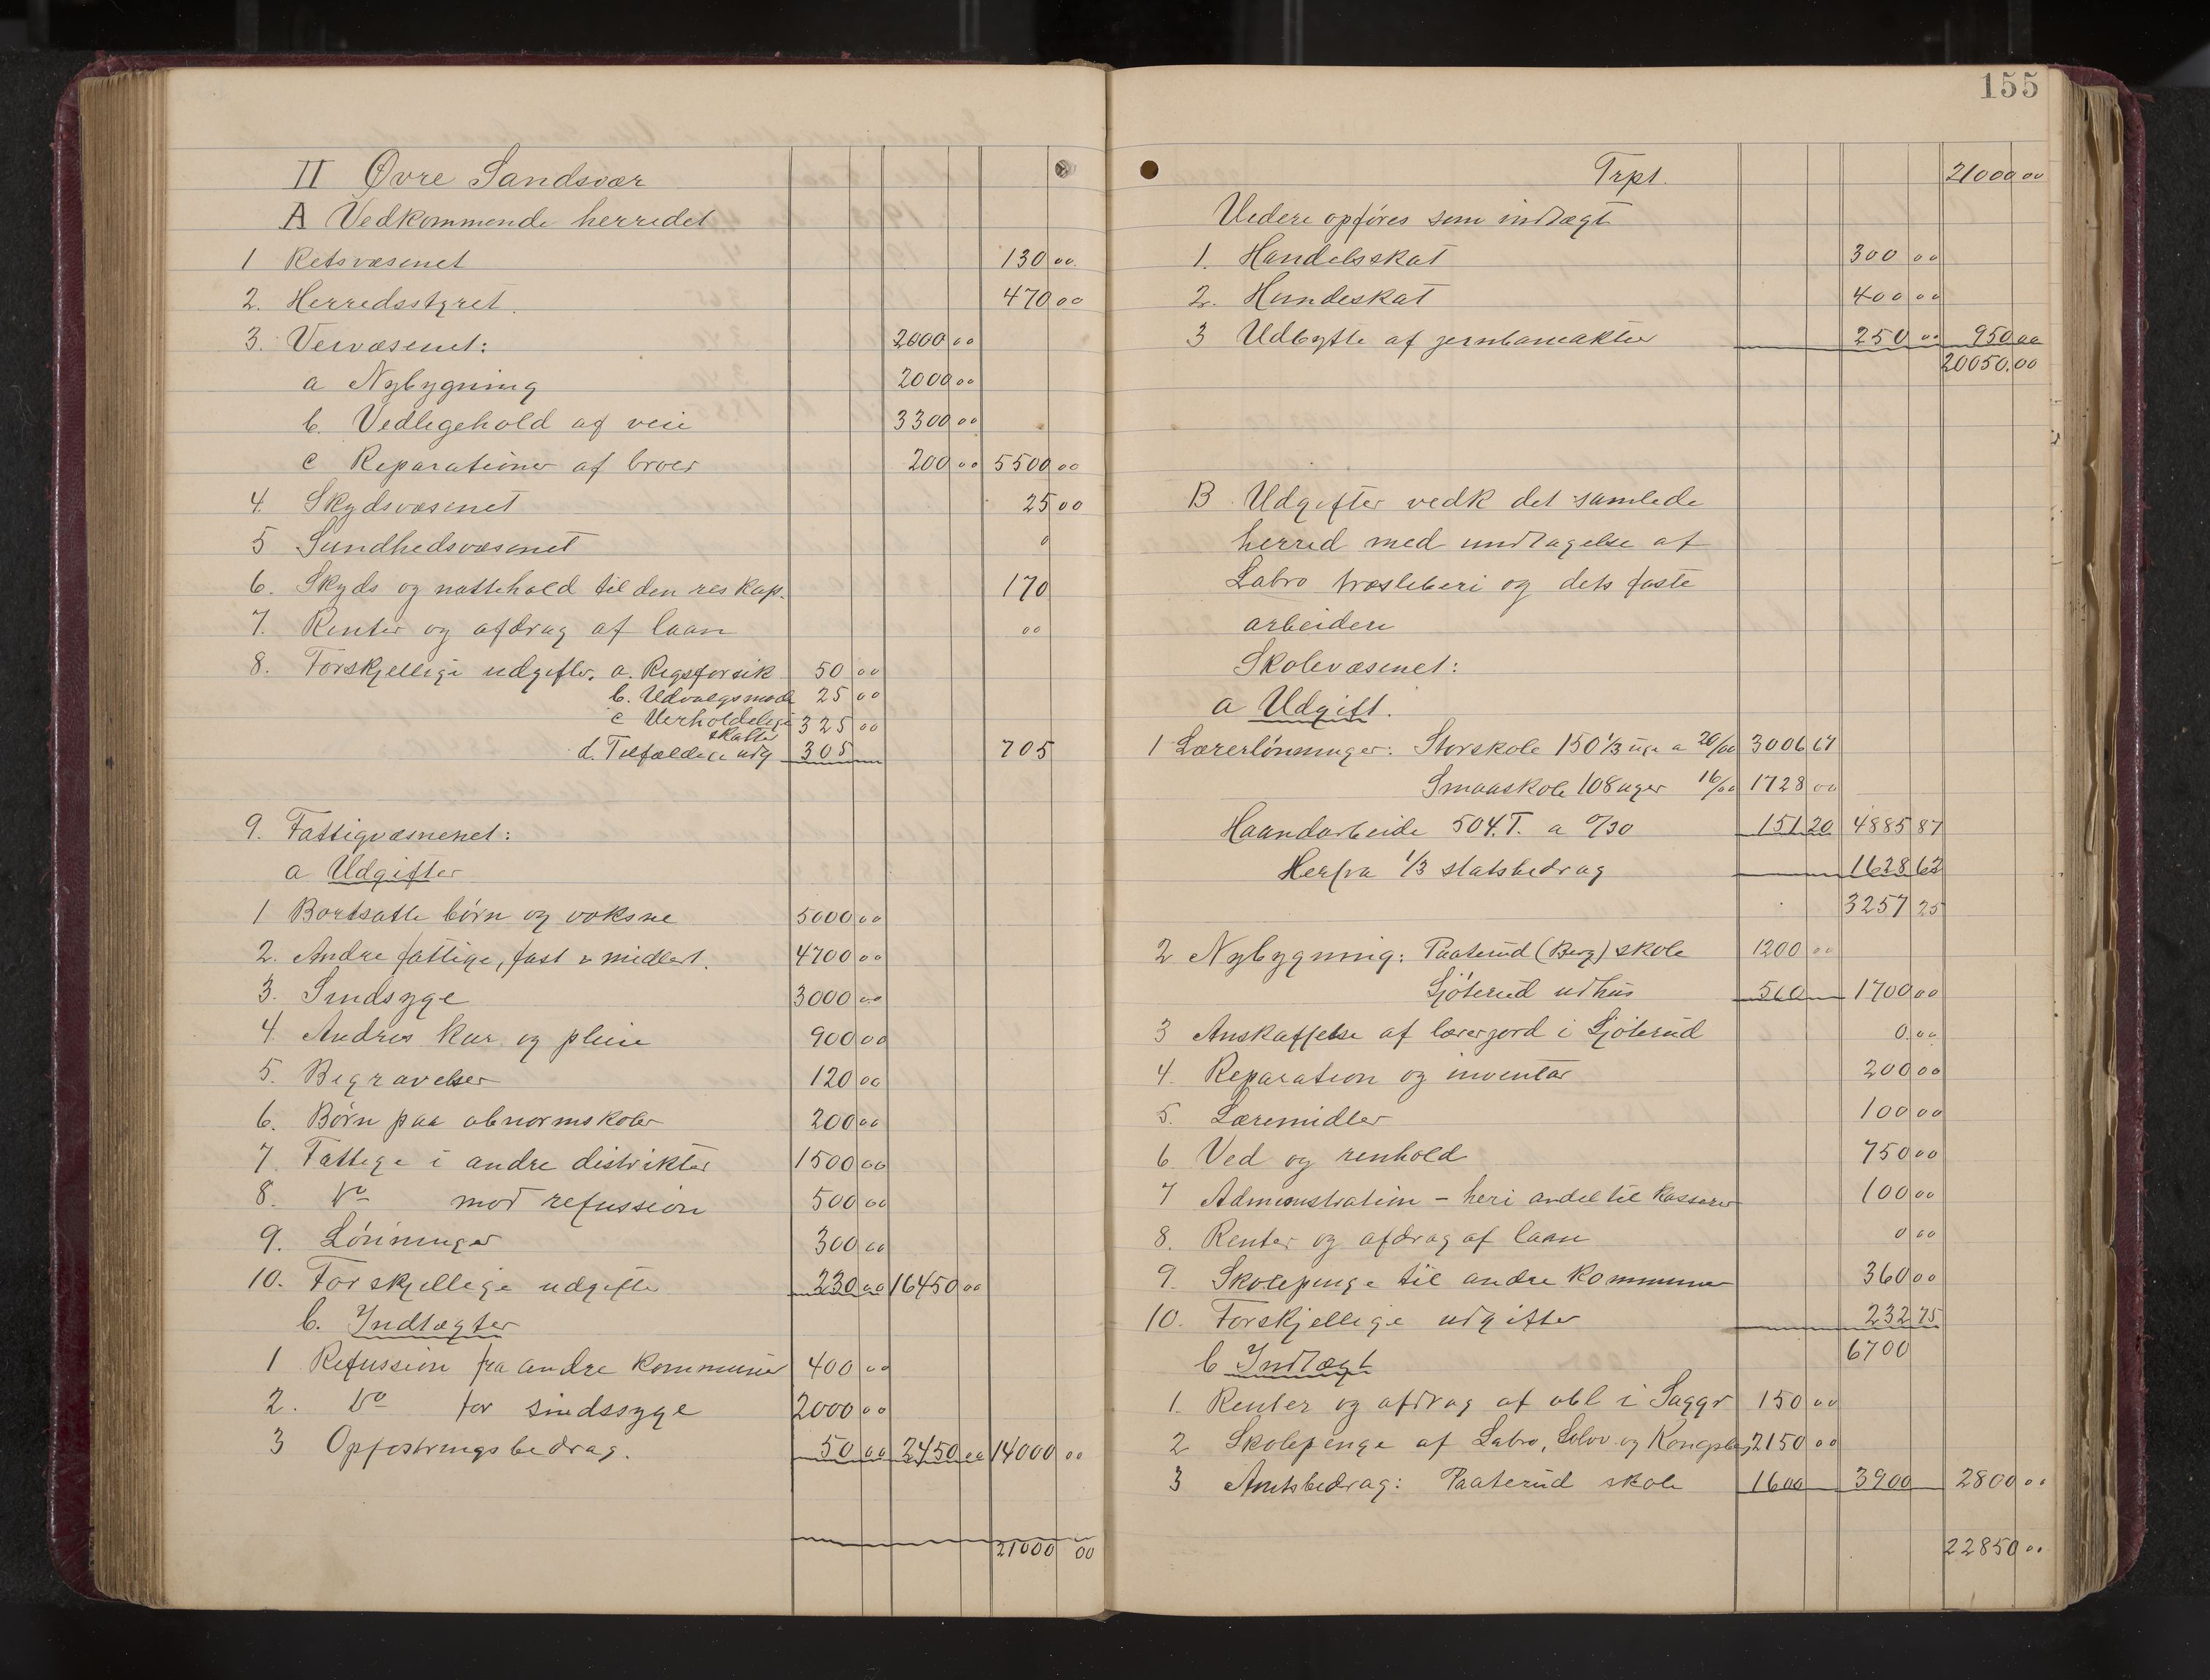 155
II Øvre Sandsvær
A Vedkommende herredet
1 Retsvæsenet 130 00
2. Herredsstyret. 470 00
3. Veivæsenet: 2000 00
a Nybygning 2000 00
b. Vedligehold af veie 3300 00
c Reparationer af broer 200 00 5500 00
4. Skydsvæsenet 25 00
5 Sundhedsvæsenet 0
6. Skyds og nattehold til den res kap. 170
7. Renter og afdrag af laan 00
8. Forskjellige udgifter. a. Rigsforsik 50 00
b. Udvalgsmøde 25 00
c Uerholdelige skatter 325 00
d. Tilfældige udg 305 705
9. Fattigvæsnenet:
a Udgifter
1 Bortsatte børn og voksne 5000 00
2. Andre fattige, fast & midlert. 4700 00
3. Sindsyge 3000 00
4 Andres kur og pleie 900 00
5. Begravelser 120 00
6. Børn paa abnormskoler 200 00
7. Fattige i andre distrikter 1500 00
8. Do mod refussion 500 00
9. Lønninger 300 00
10. Forskjellige udgifter 230 00 16450 00
b. Indtægter
1 Refussion fra andre kommuner 400 00
2. Do for sindssyge 2000 00
3 Opfostringsbedrag. 50 00 2450 00 14000 00
21000 00
Trpt. 21000 00
Videre opføres som indtægt
1. Handelsskat 300 00
2. Hundeskat 400 00
3 Udbytte af jernbaneaktier 250 00 950 00
20050.00
B Udgifter vedk det samlede
herred med undtagelse af
Labro træsliberi og dets faste
arbeidere
Skolevæsenet:
a Udgift.
1 Lærerlønninger: Storskole 150 1/3 uge a 20/00 3006 67
Smaaskole 108 uger 16/00 1728 00
Haandarbeide 504. T. a 0/30 151 20 4885 87
Herfra 1/3 statsbedrag 1628 62
3257 25
2 Nybygning: Paaterud (Berg) skole 1200 00
Gjøterud udhus 500 1700 00
3 Anskaffelse af lærerjord i Gjøterud 0.00
4. Reparation og inventar 200 00
5. Læremidler 100 00
6 Ved og renhold 750 00
7 Administration – heri andel til kasserer 100 00
8. Renter og afdrag af laan 0 00
9. Skolepenge til andre kommuner 360 00
10. Forskjellige udgifter 232 75
6700
b Indtægt
1. Renter og afdrag af obl i Saggr 150 00
2 Skolepenge af Labro, Sølvv. og Kongsberg 2150 00
3 Amtsbedrag: Paaterud skole 1600 3900 2800 00
22850 00